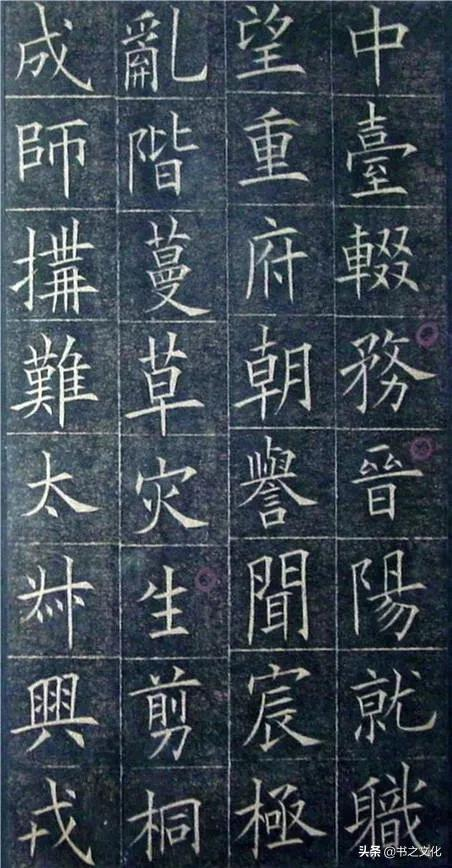 中臺輟務晉陽就職
望重府朝譽聞宸極
亂階蔓草灾生剪桐
成師搆難太叔興戎
头条 @书之文化